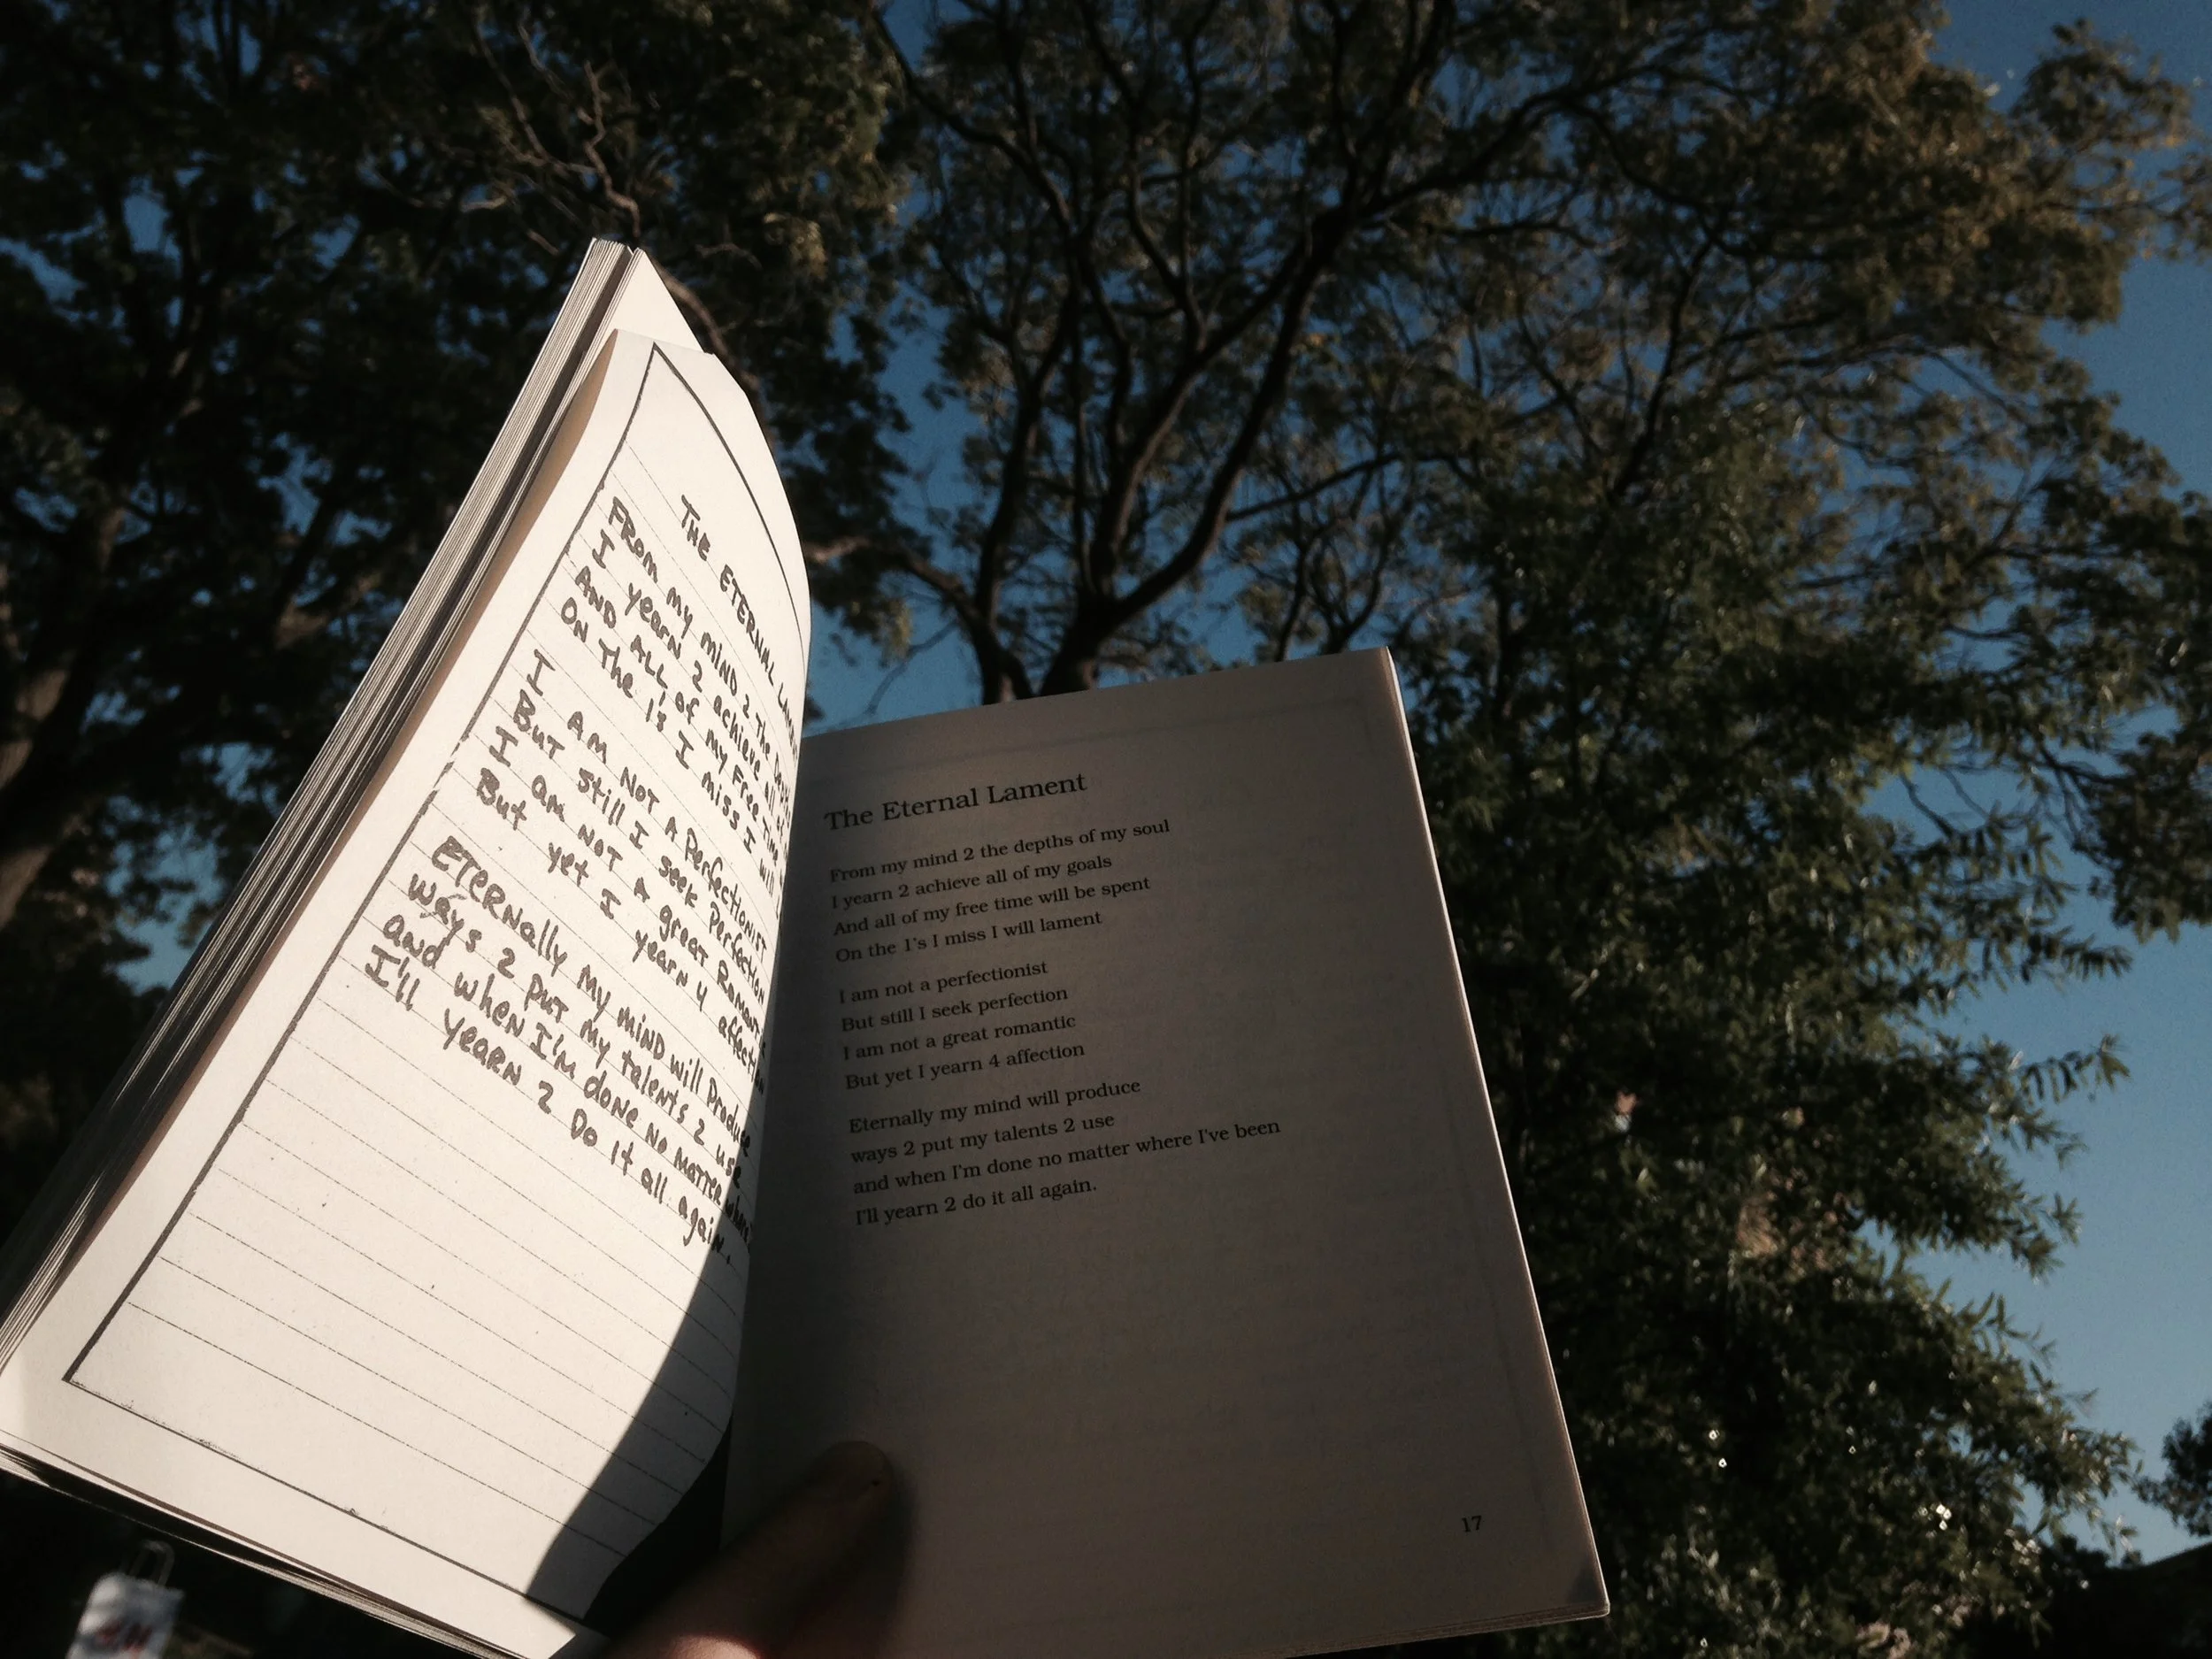 THE ETERNAL LAMENT
FROM my mind 2 The Depths
I yearn 2 achieve all of
AND ALL of my Free Time
ON The 1's I miss I will
I AM NOT A Perfectionist
But still I seek Perfection
I am NOT A great Romantic
But yet I yearn 4 affection
ETERNally my MIND will Produce
ways 2 put my talents 2 use
and when I'm done no matter where
I'll yearn 2 Do it all again.
The Eternal Lament
From my mind 2 the depths of my soul
I yearn 2 achieve all of my goals
And all of my free time will be spent
On the 1's I miss I will lament
I am not a perfectionist
But still I seek perfection
I am not a great romantic
But yet I yearn 4 affection
Eternally my mind will produce
ways 2 put my talents 2 use
and when I'm done no matter where I've been
I'll yearn 2 do it all again.
17